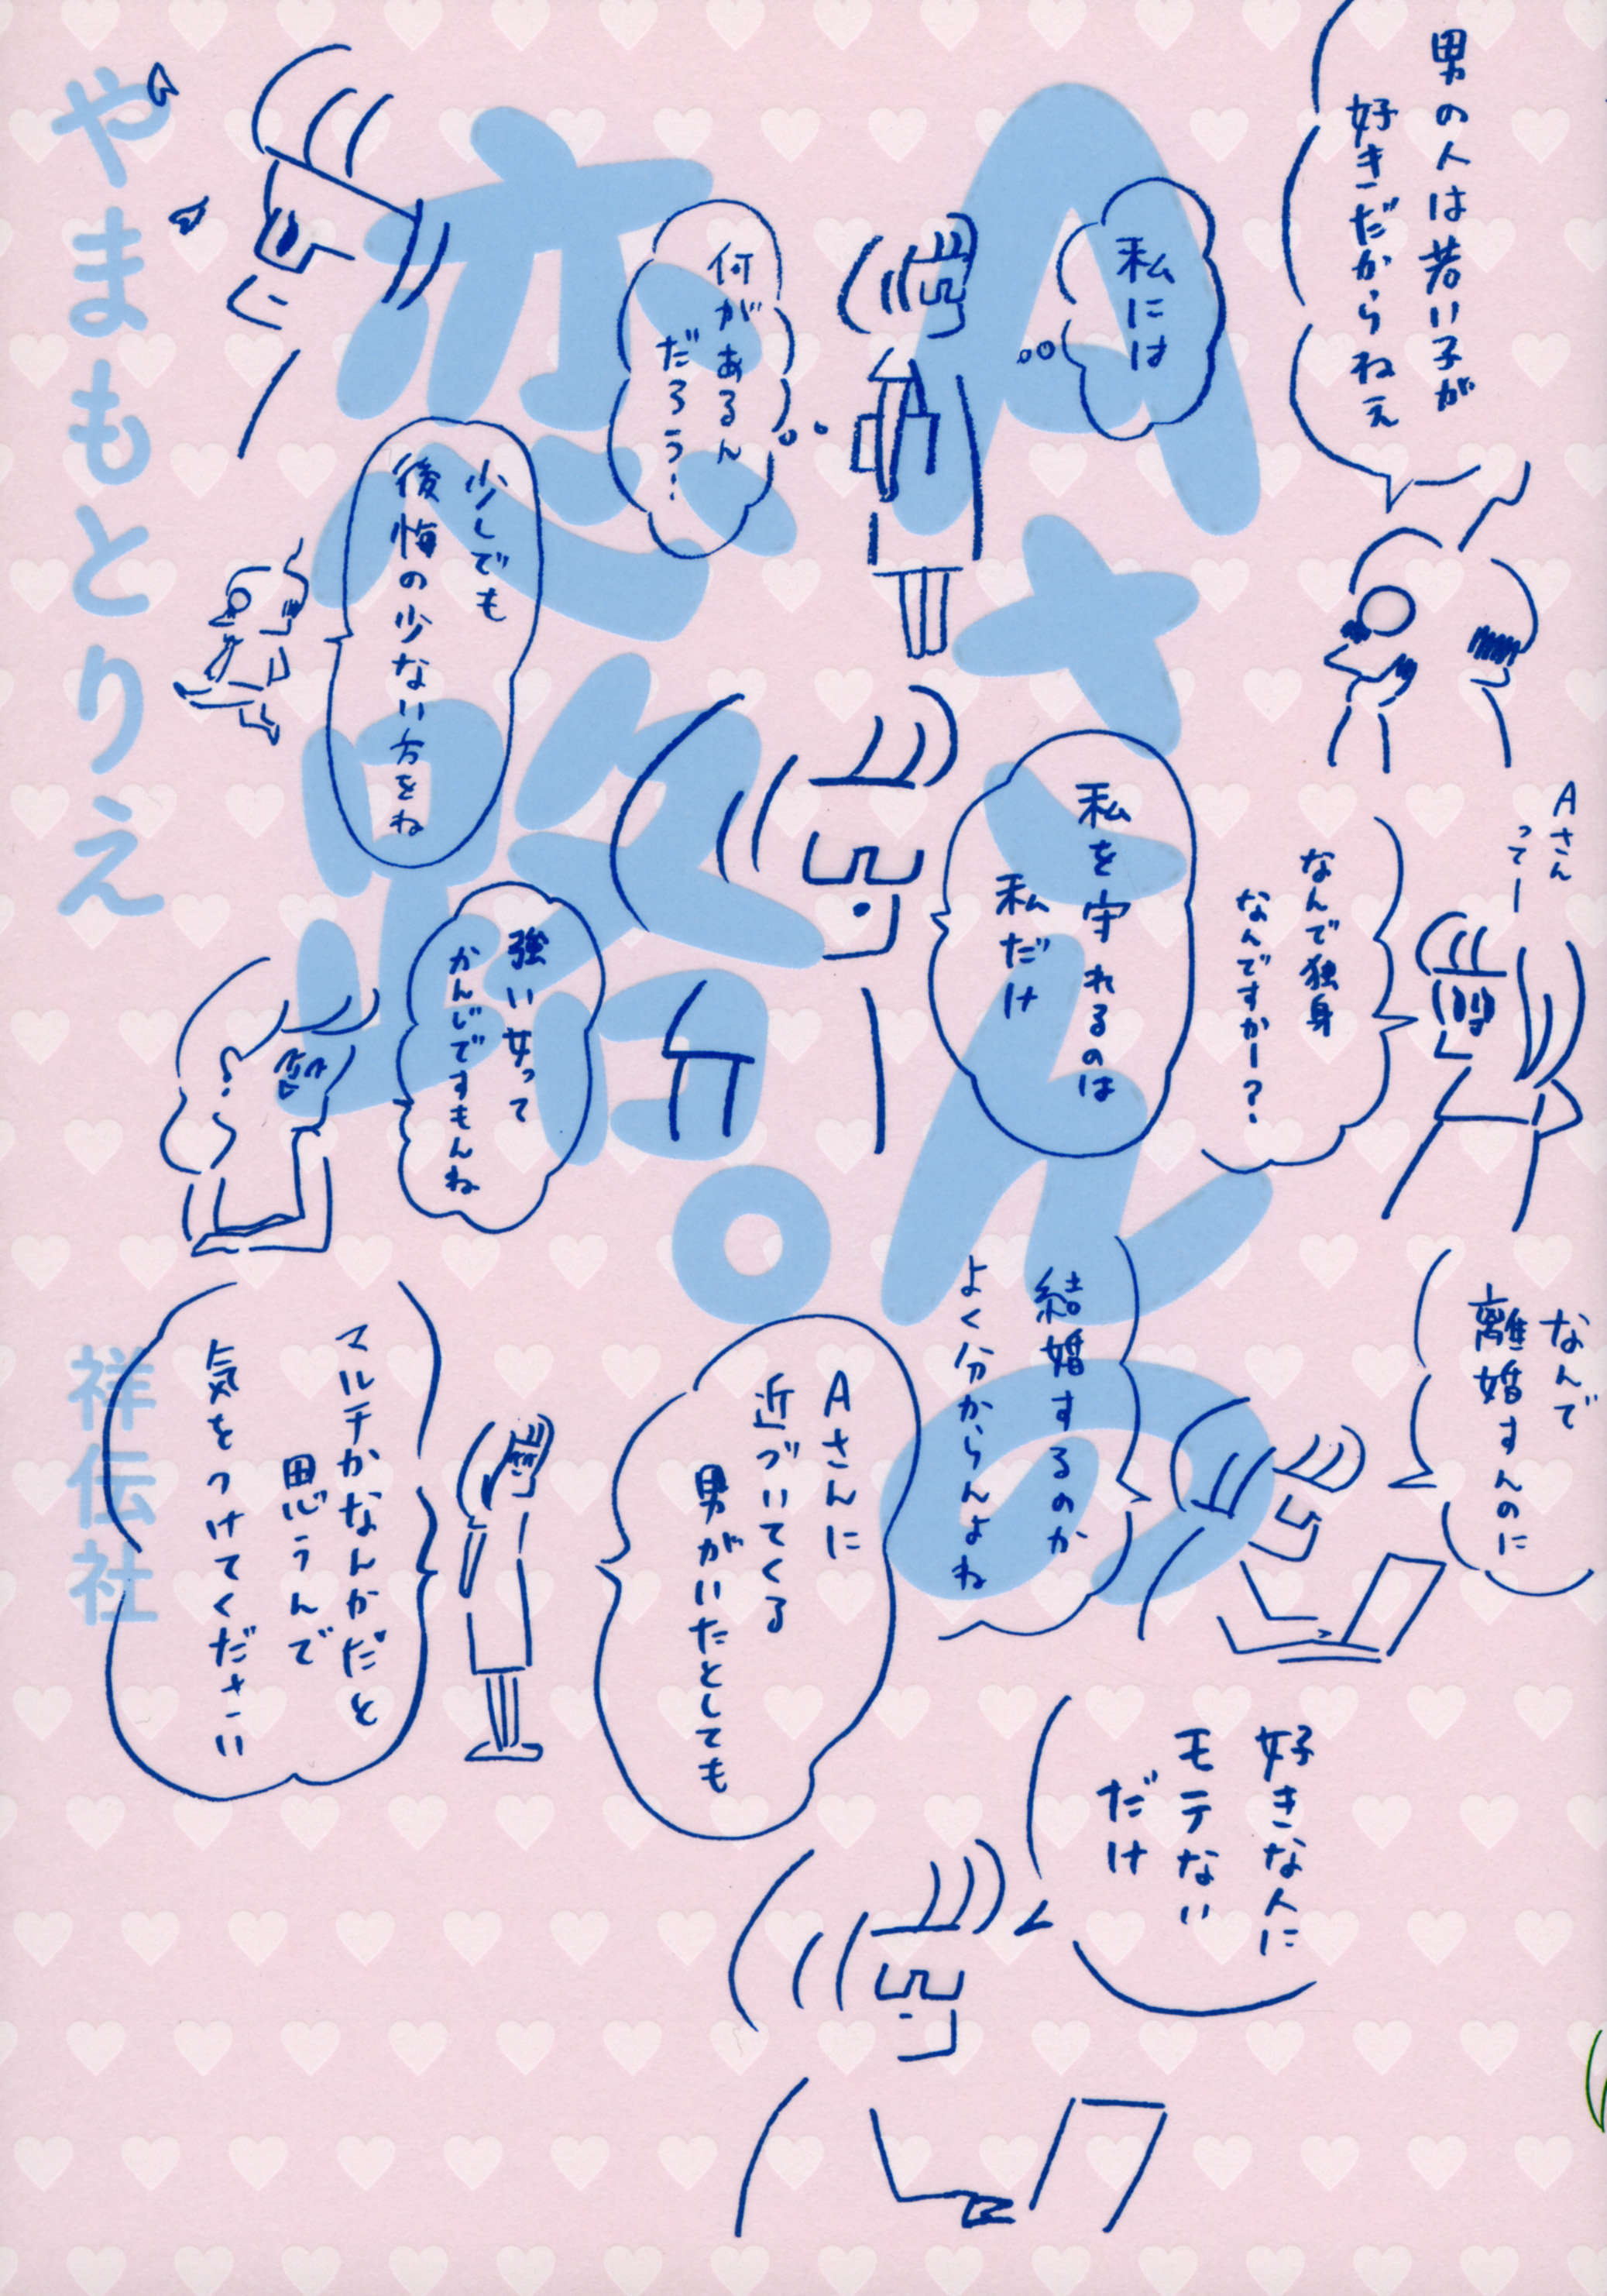 Aさんの
恋路は。
やまもとりえ
祥伝社
男の人は若い子が
好きだからねぇ
私には
何があるん
だろう…
Aさん
ってー
なんで独身
なんですかー?
私を守れるのは
私だけ
少しでも
後悔の少ない方をね
強い女って
かんじですもんね
なんで
離婚すんのに
結婚するのか
よく分からんよね
Aさんに
近づいてくる
男がいたとしても
マルチかなんかだと
思うんで
気をつけてください
好きな人に
モテない
だけ